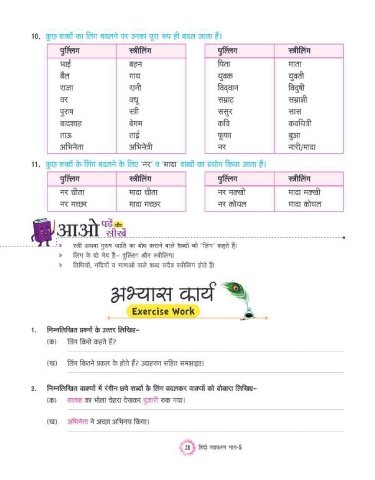 10. कुछ शब्दों का लिंग बदलने पर उनका पूरा रूप ही बदल जाता है।
पुल्लिंग स्त्रीलिंग पुल्लिंग स्त्रीलिंग
भाई बहन पिता माता
बैल गाय युवक युवती
राजा रानी विद्वान विदुषी
वर वधू सम्राट सम्राज्ञी
पुरुष स्त्री ससुर सास
बादशाह बेगम कवि कवयित्री
ताऊ ताई फूफा बुआ
अभिनेता अभिनेत्री नर नारी/मादा
11. कुछ शब्दों के लिंग बदलने के लिए 'नर' व 'मादा' शब्दों का प्रयोग किया जाता है।
पुल्लिंग स्त्रीलिंग पुल्लिंग स्त्रीलिंग
नर चीता मादा चीता नर मक्खी मादा मक्खी
नर मच्छर मादा मच्छर नर कोयल मादा कोयल
आओ पढ़ें और सीखें
» स्त्री अथवा पुरुष जाति का बोध कराने वाले शब्दों को 'लिंग' कहते हैं।
» लिंग के दो भेद हैं– पुल्लिंग और स्त्रीलिंग।
» तिथियों, नदियों व भाषाओं वाले शब्द सदैव स्त्रीलिंग होते हैं।
अभ्यास कार्य
Exercise Work
1. निम्नलिखित प्रश्नों के उत्तर लिखिए–
(क) लिंग किसे कहते हैं?
(ख) लिंग कितने प्रकार के होते हैं? उदाहरण सहित समझाइए।
2. निम्नलिखित वाक्यों में रंगीन छपे शब्दों के लिंग बदलकर वाक्यों को दोबारा लिखिए–
(क) बालक का भोला चेहरा देखकर पुजारी रुक गया।
(ख) अभिनेता ने अच्छा अभिनय किया।
28 हिंदी व्याकरण भाग-5